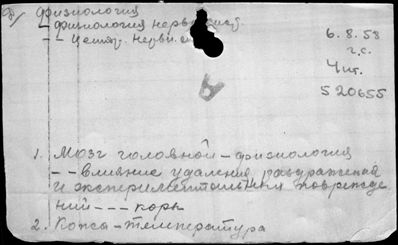 Физиология
– физиология нерв. сист.
– – центр. нервн. с
6.8.58
г.с.
Чит.
520655
А
1. Мозг головной – физиология
– – Влияние удаления раздражений
и экспериментальных поврежде
ний – – – коры
2. Колсы – температура